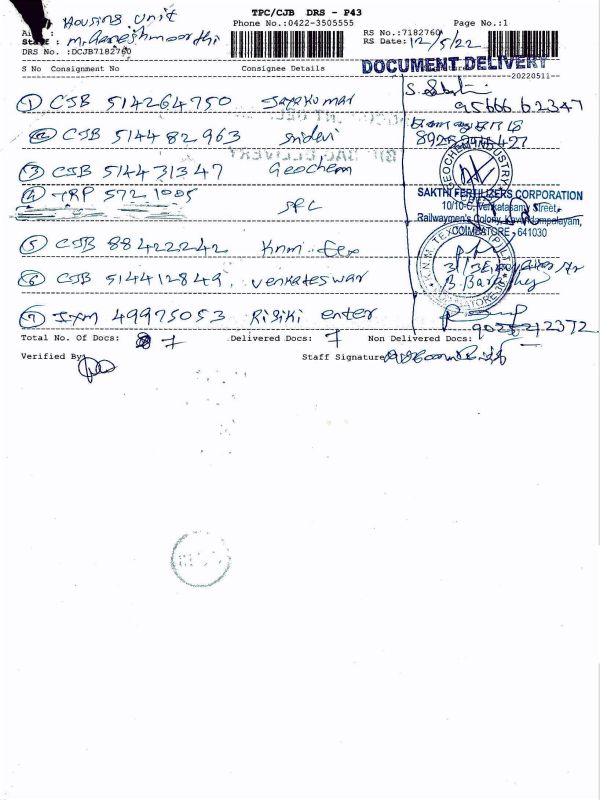 TPC/CJB DRS - P43
Housing Unit
Phone No.:0422-3505555
Page No.:1
Staff : M. Ganeshmoorthi
RS No.:7182760
DRS No. :DCJB7182760
RS Date: 12/5/22
DOCUMENT DELIVERY
S No Consignment No
Consignee Details
--20220511--
1 CJB 514264750 Jayakumar
95666 62347
2 CJB 514482963 Sridevi
3 CJB 514431347 Geochem
4 TRP 5721005 SFC
SAKTHI FERTILIZERS CORPORATION
10/10-C, Venkatasamy Street,
Railwaymen's Colony, Kavundampalayam,
COIMBATORE - 641030
5 CJB 88422242 Knm Tex
6 CJB 514412849 Venkateswar
7 49975053 Risiki enter
Total No. Of Docs: 7
Delivered Docs: 7
Non Delivered Docs:
Verified By
Staff Signature